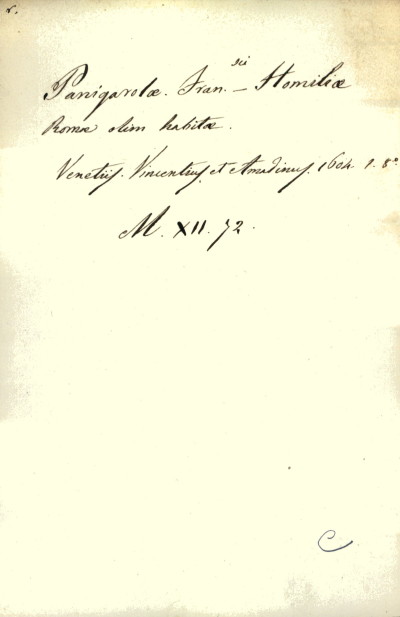 v.
Panigarolæ. Fran.sci – Homiliæ
Romæ olim habitæ.
Venetiis. Vincentius et Amadinus. 1604. 1. 8°
M. XII. 72.
C